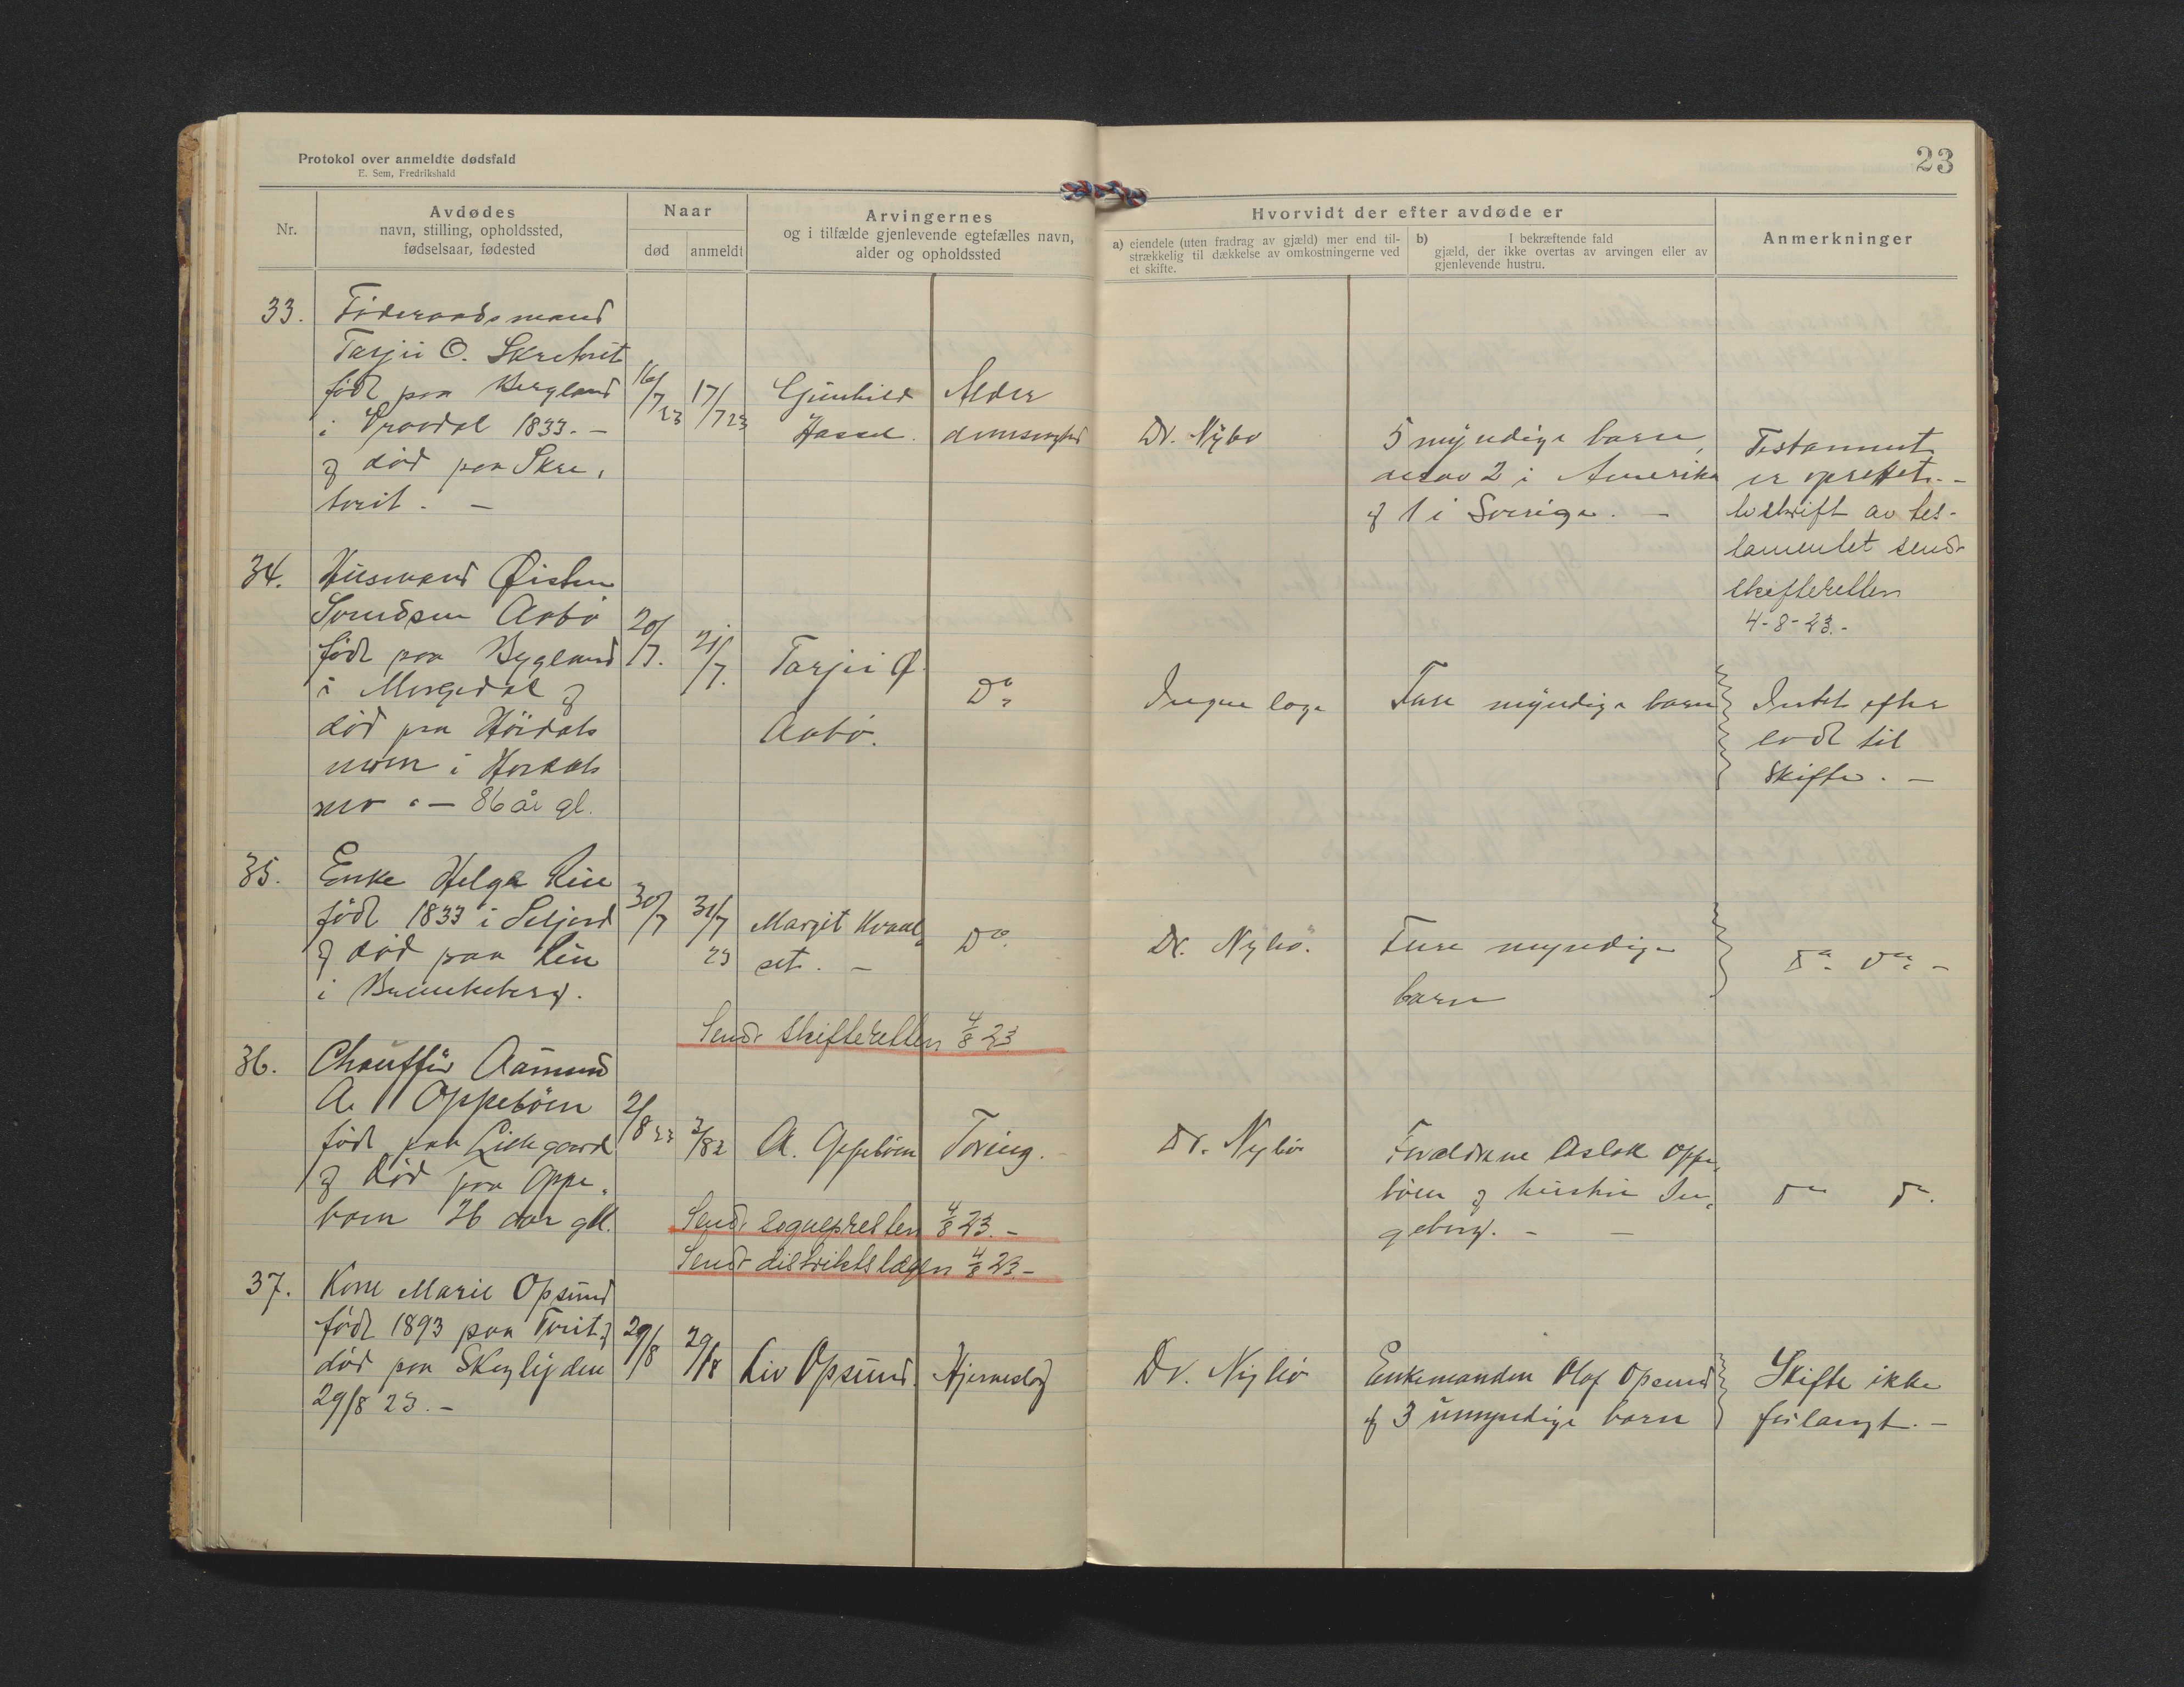 Protokol over anmeldte dødsfald
E. Sem, Fredrikshald
23
Nr.
Avdødes
navn, stilling, opholdssted,
fødselsaar, fødested
Naar
død
anmeldt
Arvingernes
og i tilfælde gjenlevende egtefælles navn,
alder og opholdssted
Hvorvidt der efter avdøde er
a) eiendele (uten fradrag av gjæld) mer end til-
strækkelig til dækkelse av omkostningerne ved
et skifte.
b) I bekræftende fald
gjæld, der ikke overtas av arvingen eller av
gjenlevende hustru.
Anmerkninger
33.
Føderaadsmand
Tarjei O. Skretveit
født paa Bergland
i Vraadal 1833. -
og død paa Skre,
tveit. -
16/7 23
17/7 23
Gunhild
Hassel.
Alder
domssvaghed
Dr. Nybø
5 myndige barn,
derav 2 i Amerika
og 1 i Sverige. -
Testament
er oprettet. -
Utskrift av tes-
tamentet sendt
skifteretten
4-8-23. -
34.
Husmand Øisten
Svendsen Aabø
født paa Bygland
i Morgedal og
død paa Høidals
moen i Høidals
mo. - 86 år gl.
20/7.
21/7.
Tarjei Ø.
Aabø.
Do
Ingen læge
Fire myndige barn
Intet efter
ladt til
skifte. -
35.
Enke Helga Lien
født 1833 i Seljord
og død paa Lien
i Brunkeberg.
30/7
31/7
23
Margit Kvaal,
set. -
Do.
Dr. Nybø.
Fire myndige
barn
Do. Do. -
Sendt skifteretten 4/8 23
36.
Chauffør Aamund
A. Oppebøen
født paa Liekgaard
og død paa Oppe,
bøen 26 aar gl.
2/8 23
3/8 23
A. Oppebøen
Tæring.
Dr. Nybø
Forældrene Aslak Oppe,
bøen og hustru In,
geborg. -
Do Do.
Sendt sognepresten 4/8 23. -
Sendt distriktslægen 4/8 23. -
37.
Kone Marie Opsund
født 1893 paa Tveit og
død paa Skeylijdene
29/8 23. -
29/8
29/8
Liv Opsund.
Hjerneslag
Dr. Nybø
Enkemanden Olaf Opsund
og 3 umyndige barn
Skifte ikke
forlangt. -